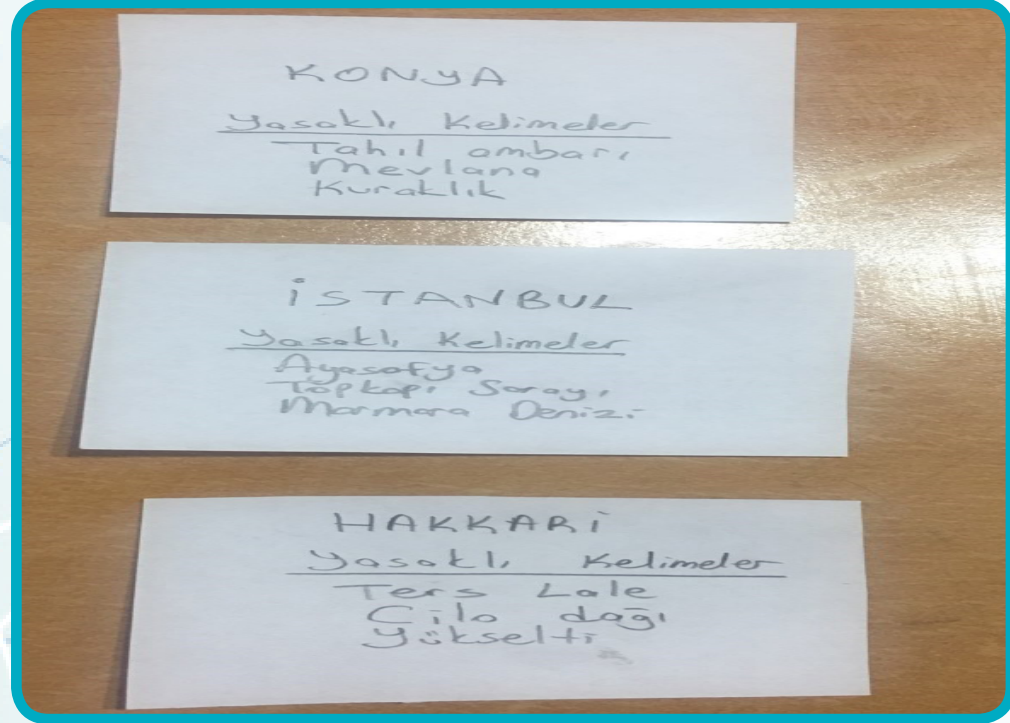 KONYA
Yasaklı Kelimeler
Tahıl ambarı
Mevlana
Kuraklık
İSTANBUL
Yasaklı Kelimeler
Ayasofya
Topkapı Sarayı
Marmara Denizi
HAKKARİ
Yasaklı Kelimeler
Ters Lale
Cilo dağı
Yükselti